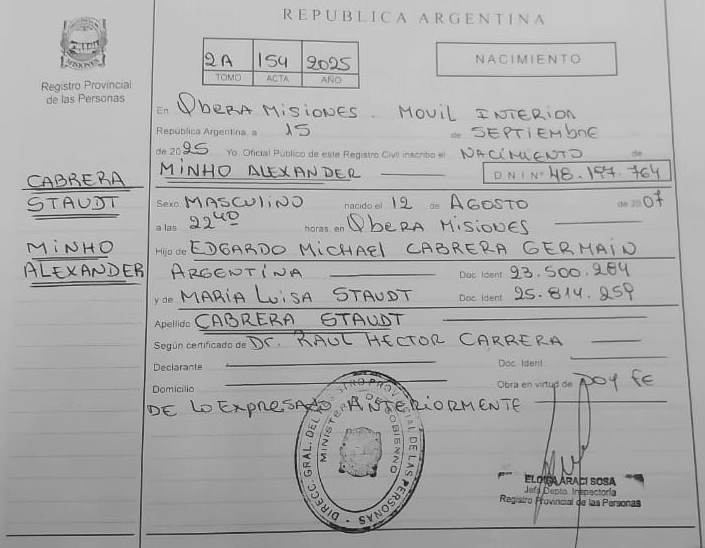 REPUBLICA ARGENTINA
MISIONES
Registro Provincial
de las Personas
2A 154 2025
TOMO ACTA AÑO
NACIMIENTO
En ObERA MISIONES. MOVIL INTERIOR
República Argentina, a 15 de SEPTIEMBRE
de 2025 Yo. Oficial Público de este Registro Civil inscribo el NACIMIENTO de
MINHO ALEXANDER D N I Nº 48.197.764
CABRERA
STAUDT
MINHO
ALEXANDER
Sexo MASCULINO nacido el 12 de AGOSTO de 2007
a las 22 40 horas, en ObERA MISIONES
Hijo de EDGARDO MICHAEL CABRERA GERMAIN
ARGENTINA Doc. Ident. 23.500.284
y de MARIA LUISA STAUDT Doc. Ident. 25.814.259
Apellido CABRERA STAUDT
Según certificado de Dr. RAUL HECTOR CARRERA
Declarante Doc. Ident.
Domicilio Obra en virtud de DOY FE
DE LO EXPRESADO ANTERIORMENTE
DIRECC. GRAL. DEL REGISTRO PROVINCIAL DE LAS PERSONAS
MINISTERIO DE GOBIERNO
ARACI SOSA
Jefa Depto. Inspectoría
Registro Provincial de las Personas